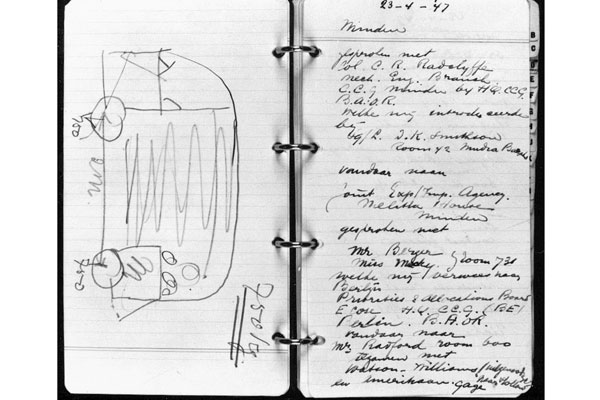 750
750
7500 kg
23-4-'47
Minden
gesproken met
Col. C. R. Radclyffe
Mech. Eng. Branch
C.C.G Minden by H.Q. CCG.
B.A.O.R.
welke mij introduceerde
by
Room 42 Mudra
vandaar naar
Joint Exp/Imp. Agency.
Melitta House
Minden
gesproken met
Mr Berger
Miss room 731
welke mij verwees naar
Berlijn
Priorities & allocations Board
Econ H.Q. CCG. (BE)
Berlin. B.A.O.R.
vandaar naar
Mr. Radford room 600
tezamen met
Watson-Williams
en amerikaan. Gage
B
C
D
E
F